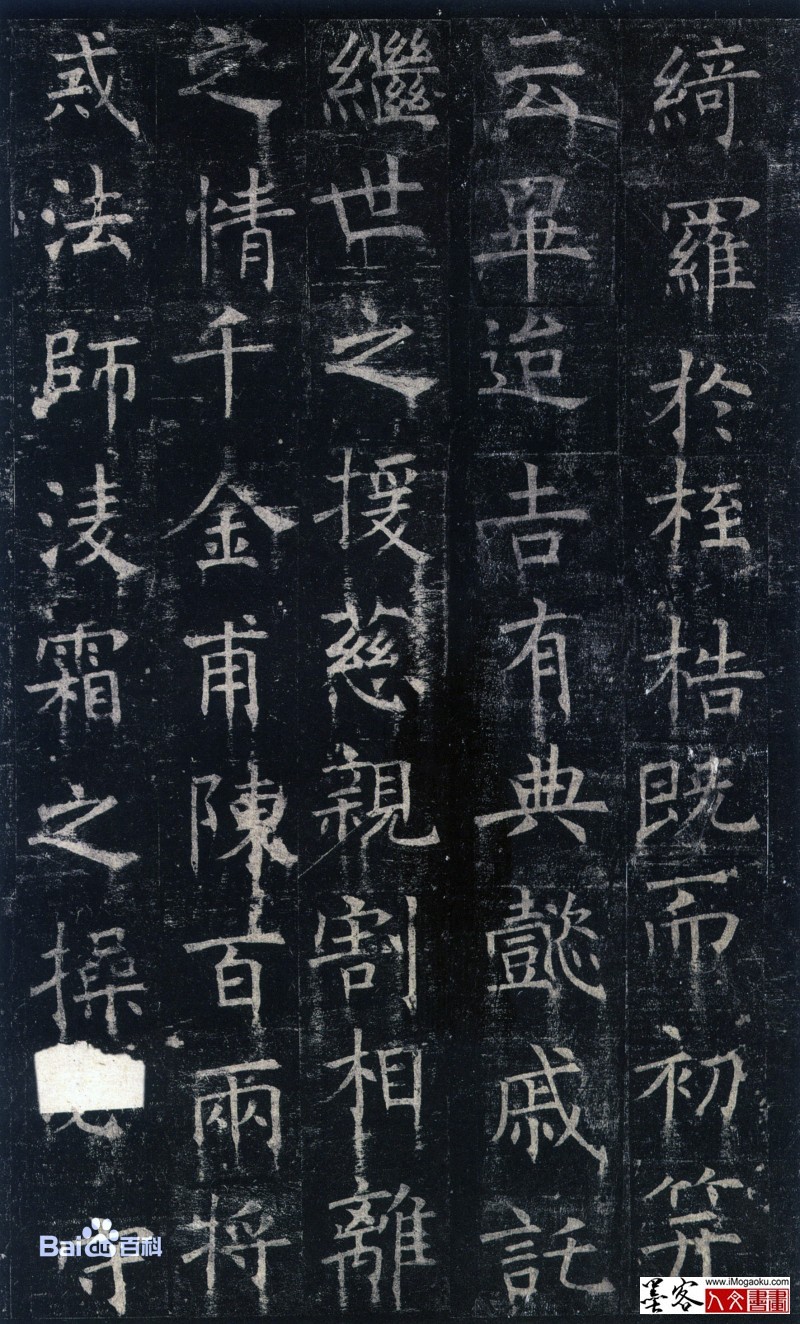 綺羅於桎梏既而初笄
云畢迨吉有典懿戚託
継世之援慈親割相離
之情千金甫陳百兩将
戒法師淩霜之操
守
Bai 百科
www.iMogaoku.com
墨客 人文書畫